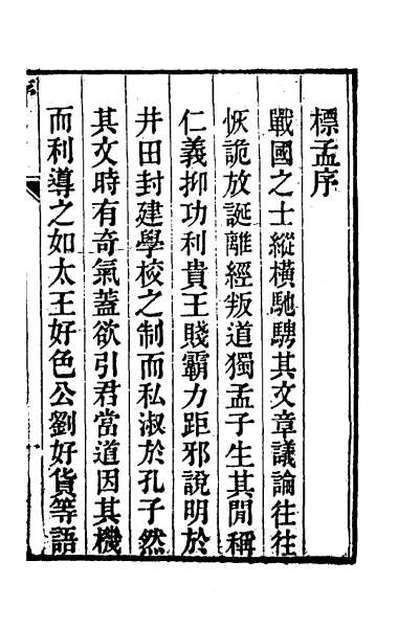 標孟序
戰國之士縱橫馳騁其文章議論往往
恢詭放誕離經叛道獨孟子生其閒稱
仁義抑功利貴王賤霸力距邪說明於
井田封建學校之制而私淑於孔子然
其文時有奇氣蓋欲引君當道因其機
而利導之如太王好色公劉好貨等語